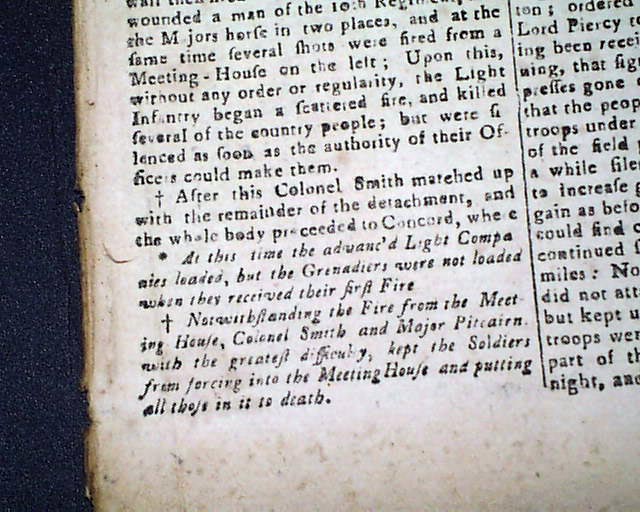 wounded a man of the 10th Regiment,
the Majors horſe in two places, and at the
ſame time ſeveral ſhots were fired from a
Meeting-Houſe on the left; Upon this,
without any order or regularity, the Light
Infantry began a ſcattered fire, and killed
ſeveral of the country people; but were ſi
lenced as ſoon as the authority of their Of-
ficers could make them.
† After this Colonel Smith marched up
with the remainder of the detachment, and
the whole body proceeded to Concord, where
* At this time the advanc'd Light Compa
nies loaded, but the Grenadiers were not loaded
when they received their firſt Fire
† Notwithſtanding the Fire from the Meet-
ing Houſe, Colonel Smith and Major Pitcairn.
with the greateſt difficulty, kept the Soldiers
from forcing into the Meeting Houſe and putting
all thoſe in it to death.
ton; ordered
Lord Piercy
ing been recei
ning, that ſig
preſſes gone
that the peop
troops under
of the field
a while ſile
to increaſe
gain as befo
could find
continued
miles: No
did not att
but kept u
troops wer
part of th
night, and